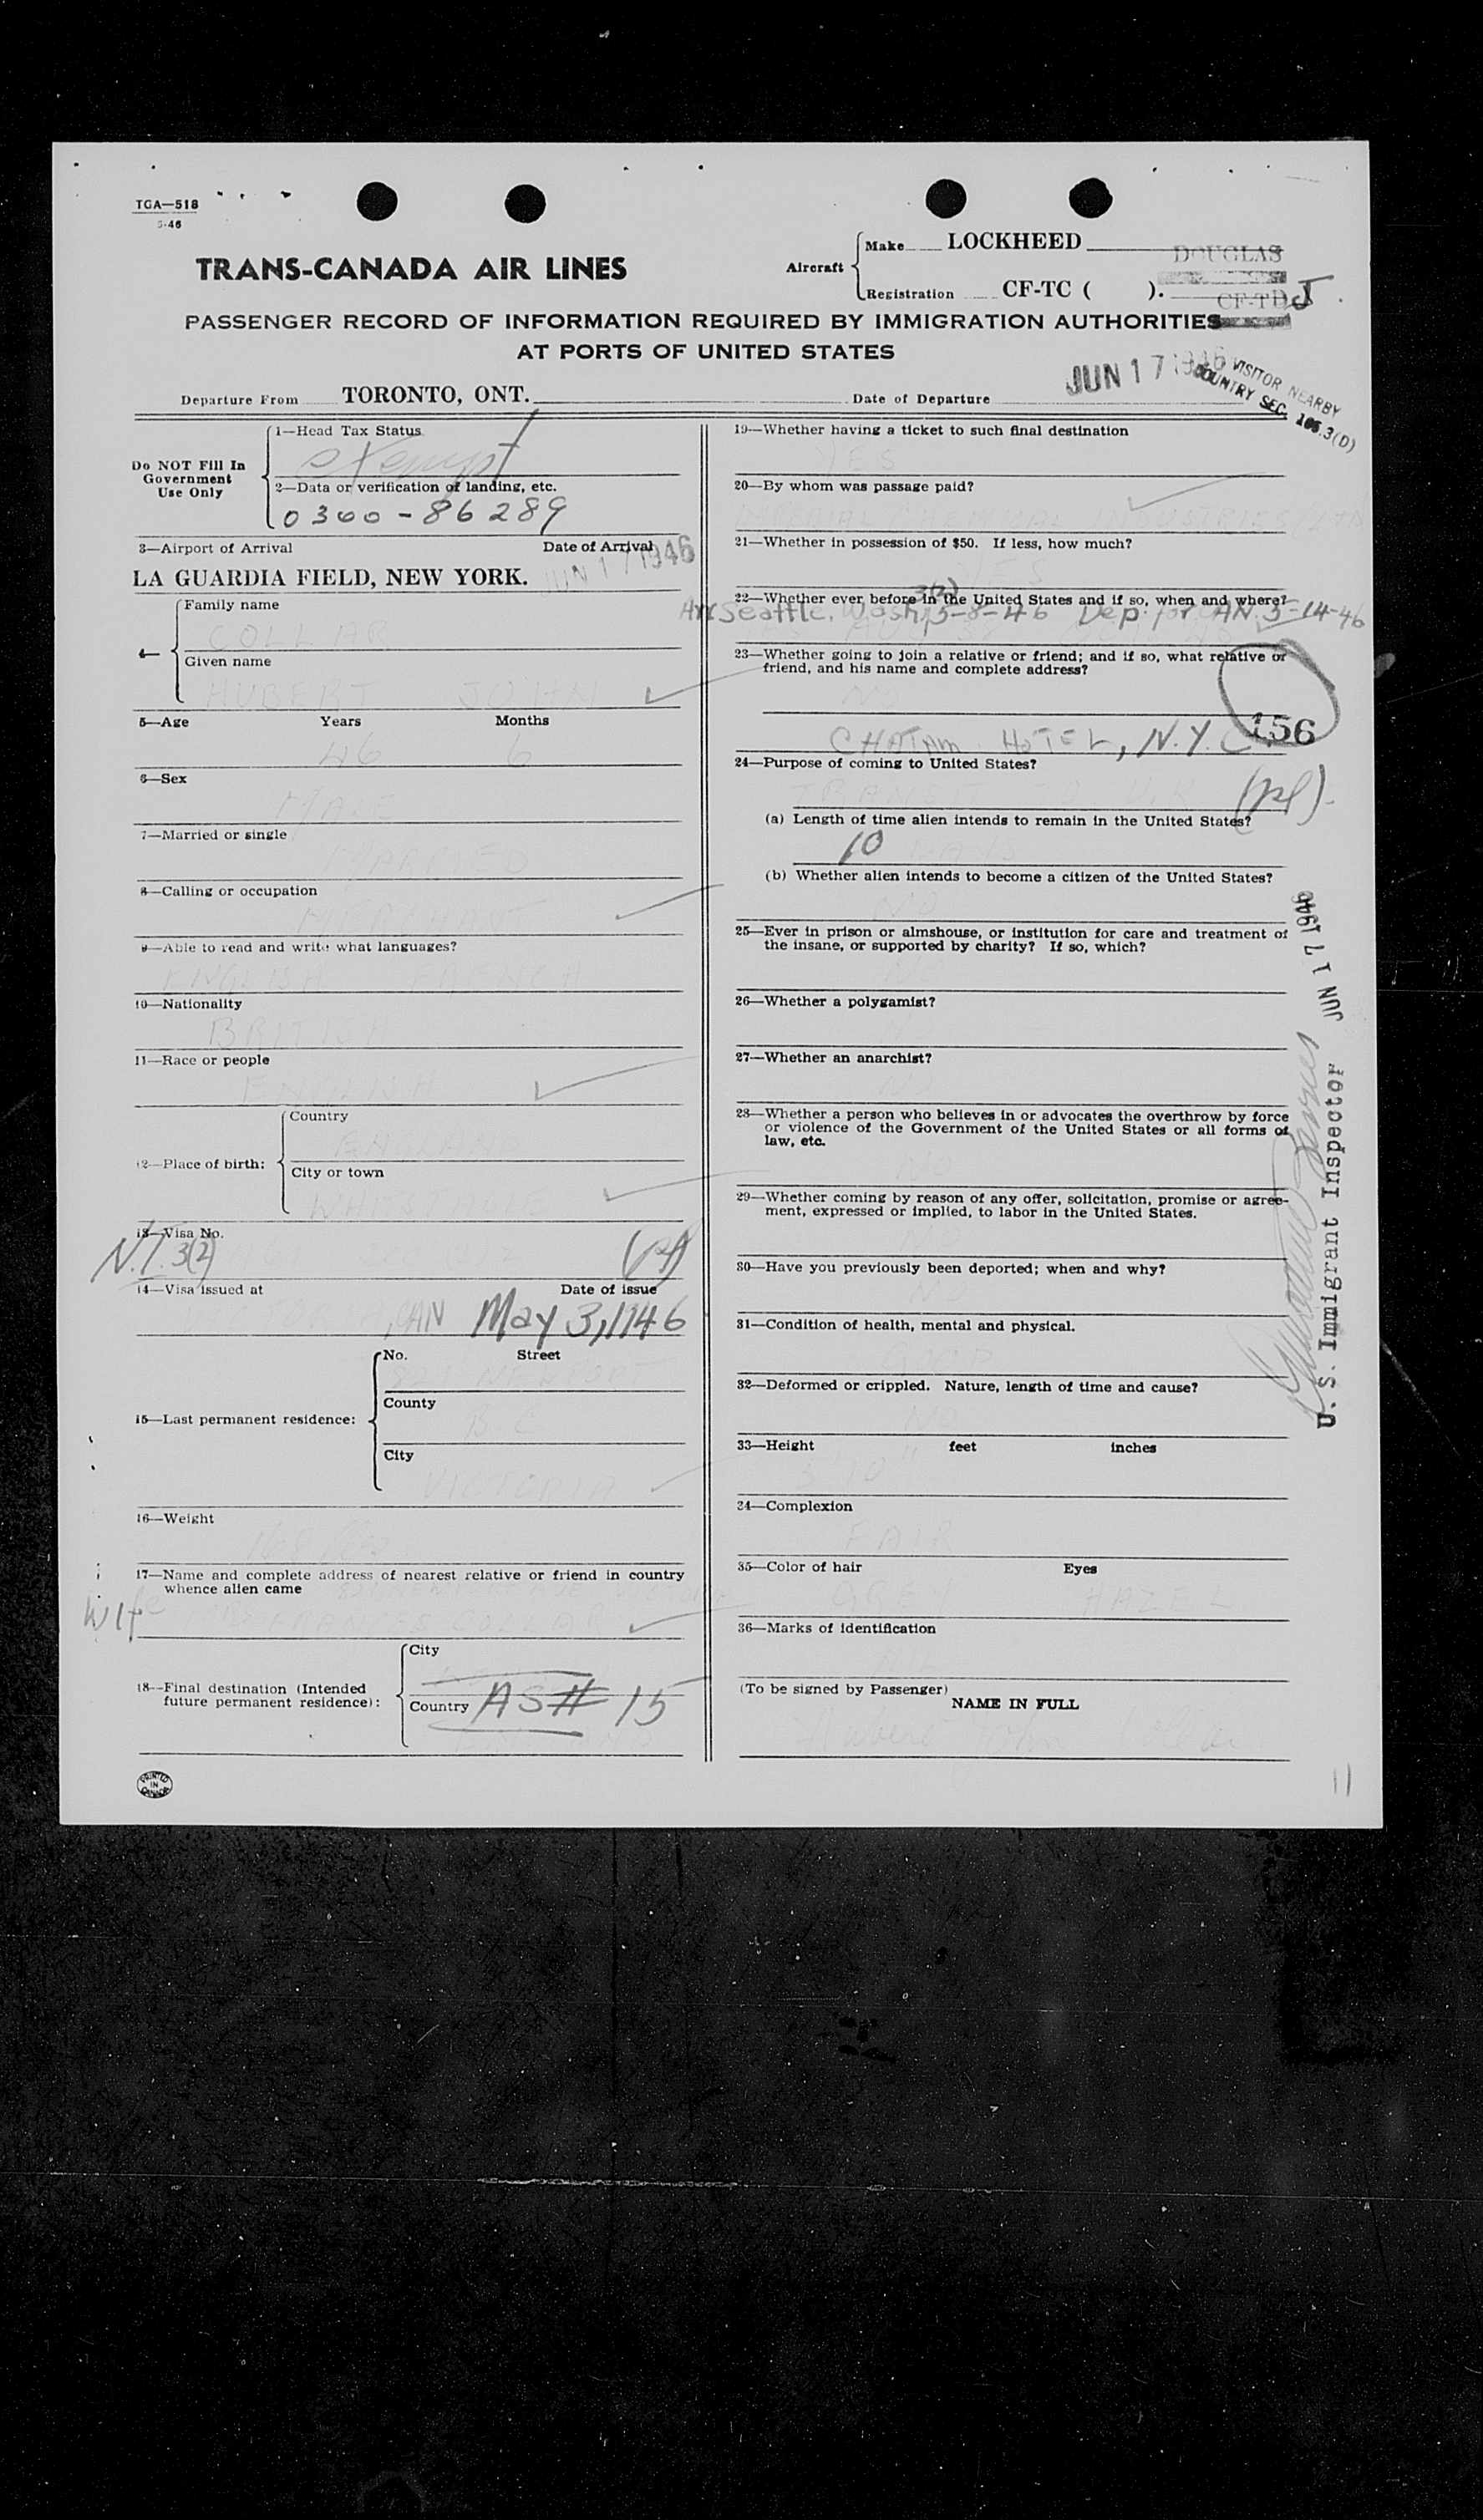 TCA—518
5-46
TRANS-CANADA AIR LINES
Aircraft
Make LOCKHEED
DOUGLAS
Registration CF-TC ( ).
CF-TD J
PASSENGER RECORD OF INFORMATION REQUIRED BY IMMIGRATION AUTHORITIES
AT PORTS OF UNITED STATES
Departure From TORONTO, ONT.
Date of Departure JUN 17 1946
VISITOR NEARBY
COUNTRY SEC. 165.3(D)
Do NOT Fill In
Government
Use Only
1—Head Tax Status
exempt
2—Data or verification of landing, etc.
0300-86289
3—Airport of Arrival Date of Arrival
LA GUARDIA FIELD, NEW YORK. JUN 17 1946
4—
Family name
COLLAR
Given name
HUBERT JOHN
5—Age Years Months
46 6
6—Sex
MALE
7—Married or single
MARRIED
8—Calling or occupation
MERCHANT
9—Able to read and write what languages?
ENGLISH FRENCH
10—Nationality
BRITISH
11—Race or people
ENGLISH
12—Place of birth:
Country
ENGLAND
City or town
13—Visa No.
N.I. 3(2)
14—Visa issued at Date of issue
CAN May 3, 1946
15—Last permanent residence:
No. Street
County
B C
City
VICTORIA
16—Weight
17—Name and complete address of nearest relative or friend in country
whence alien came
Wife
FRANCES COLLAR
18—Final destination (Intended
future permanent residence):
City
Country AS# 15
PRINTED
IN
CANADA
19—Whether having a ticket to such final destination
YES
20—By whom was passage paid?
21—Whether in possession of $50. If less, how much?
YES
22—Whether ever before in the United States and if so, when and where?
3(2)
Arr Seattle, Wash, 5-8-46 Dep. for CAN. 5-14-46
23—Whether going to join a relative or friend; and if so, what relative or
friend, and his name and complete address?
NO
156
CHATAM HOTEL, N.Y.C.
24—Purpose of coming to United States?
(a) Length of time alien intends to remain in the United States?
10
(b) Whether alien intends to become a citizen of the United States?
NO
25—Ever in prison or almshouse, or institution for care and treatment of
the insane, or supported by charity? If so, which?
26—Whether a polygamist?
27—Whether an anarchist?
28—Whether a person who believes in or advocates the overthrow by force
or violence of the Government of the United States or all forms of
law, etc.
NO
29—Whether coming by reason of any offer, solicitation, promise or agree-
ment, expressed or implied, to labor in the United States.
30—Have you previously been deported; when and why?
31—Condition of health, mental and physical.
GOOD
32—Deformed or crippled. Nature, length of time and cause?
NO
33—Height feet inches
5 10"
34—Complexion
FAIR
35—Color of hair Eyes
GREY HAZEL
36—Marks of identification
(To be signed by Passenger)
NAME IN FULL
Hubert John Collar
U. S. Immigrant Inspector JUN 17 1946
11